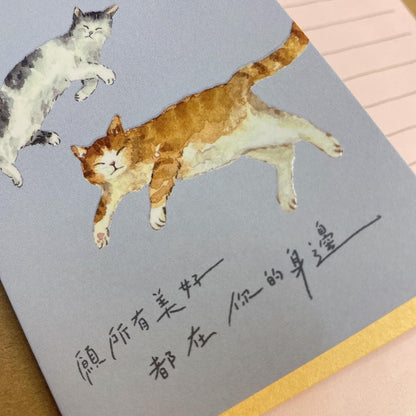 願所有美好
都在你的身邊